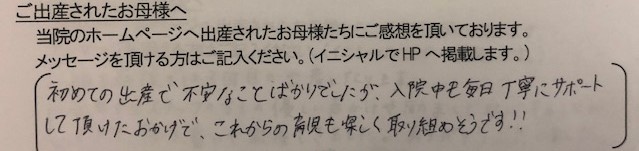 ご出産されたお母様へ
当院のホームページへ出産されたお母様たちにご感想を頂いております。
メッセージを頂ける方はご記入ください。(イニシャルでHPへ掲載します。)
初めての出産で不安なことばかりでしたが、入院中も毎日丁寧にサポート
して頂けたおかげで、これからの育児も楽しく取り組めそうです!!